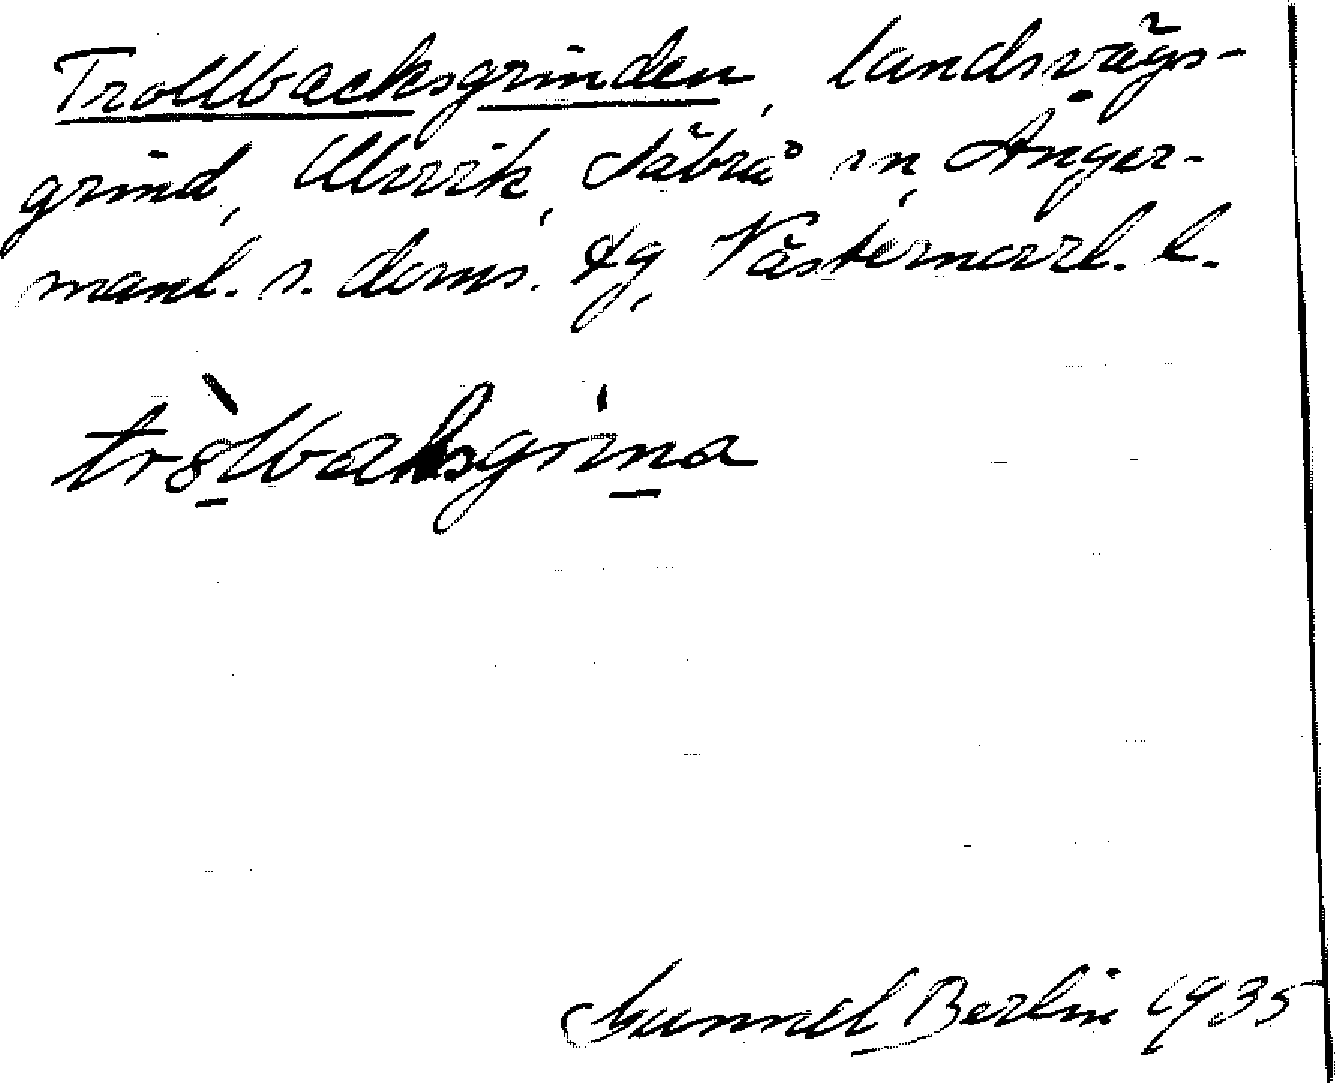 Trollbacksgrinden, landsvägs-
grind, Ulvvik, Säbrå sn, Ånger-
manl. s. doms. tg, Västernorrl. l.
tròlbaksgrina
Gunnel Berlin 1935